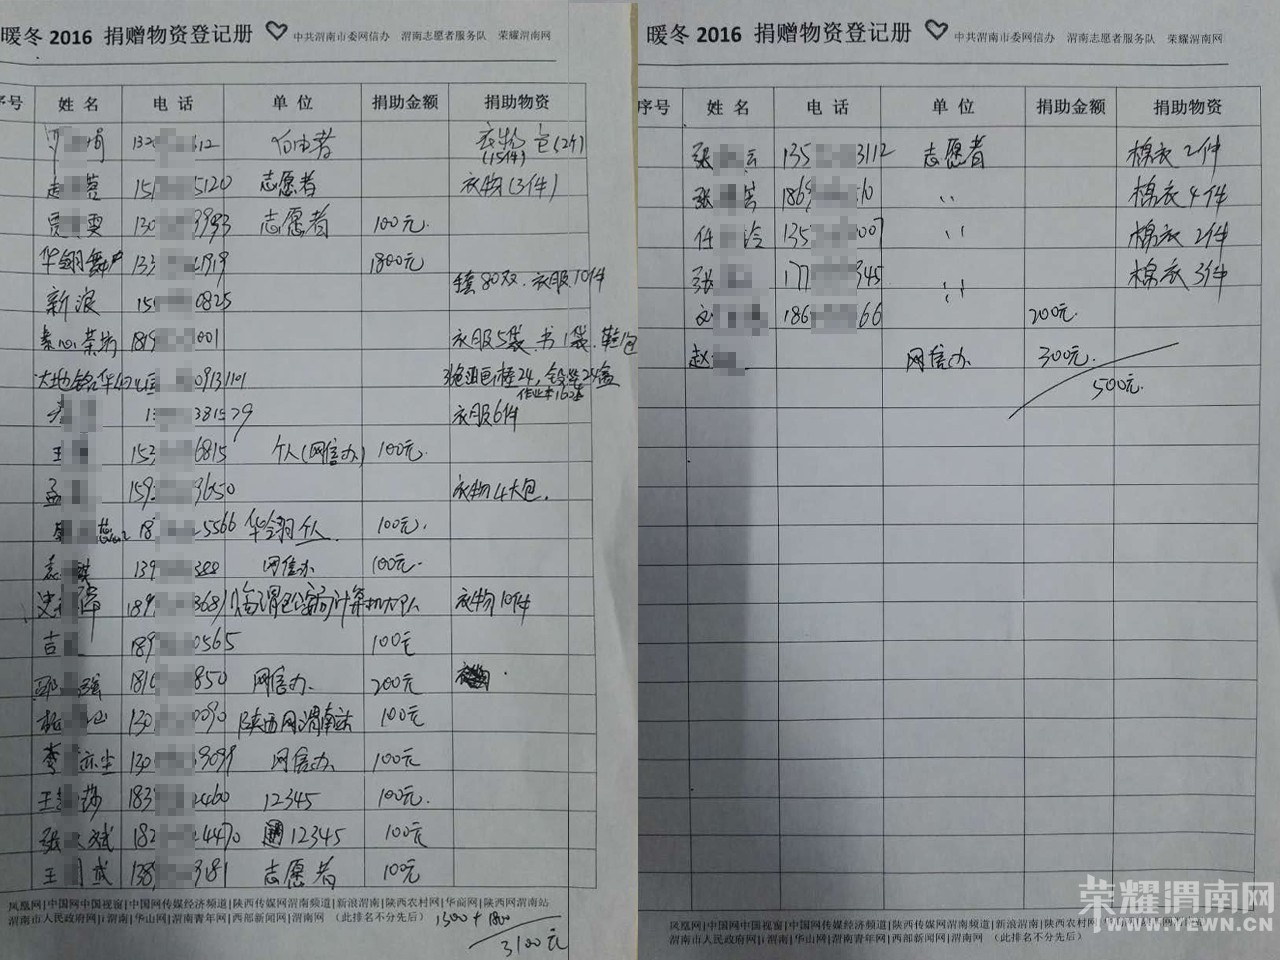 暖冬 2016 捐赠物资登记册 中共渭南市委网信办 渭南志愿者服务队 荣耀渭南网
序号 姓名 电话 单位 捐助金额 捐助物资
娟 132 612 志愿者 衣物(15件) 包(2个)
赵 蓉 151 5120 志愿者 衣物(3件)
贾 雯 130 3993 志愿者 100元.
华翎舞 133 1919 1800元
新浪 151 0825 鞋80双.衣服10件
素心茶坊 1819 001 衣服5袋.书1袋.鞋1包
大地 0913 1101 24, 24盒
作业本
1 381529 衣服6件
王 152 6815 个人(网信办) 100元.
孟 159 3650 衣物4大包.
18 5566 华翎个人. 100元.
袁 琪 139 388 网信办 100元.
史 189 3681 临渭区 计算机大队 衣物10件
吉 189 0565 100元
强 181 850 网信办. 200元
杨 130 0090 陕西网渭南站 100元
李 亦尘 130 9099 网信办 100元
王 莎 183 2460 12345 100元.
张 斌 182 4470 12345 100元
王 斌 138 3181 志愿者 100元
凤凰网|中国网中国视窗|中国网传媒经济频道|陕西传媒网渭南频道|新浪渭南|陕西农村网|华商网|陕西网渭南站
渭南市人民政府网|i渭南|华山网|渭南青年网|西部新闻网|渭南网 (此排名不分先后)
1300 + 1800
3100元
暖冬 2016 捐赠物资登记册 中共渭南市委网信办 渭南志愿者服务队 荣耀渭南网
序号 姓名 电话 单位 捐助金额 捐助物资
张 云 135 3112 志愿者 棉衣2件
张 186 10 〃 棉衣4件
任 玲 135 007 〃 棉衣2件
张 177 345 〃 棉衣3件
刘 186 66 200元.
赵 网信办 300元.
500元.
凤凰网|中国网中国视窗|中国网传媒经济频道|陕西传媒网渭南频道|新浪渭南|陕西农村网
渭南市人民政府网|i渭南|华山网|渭南青年网|西部新闻网|渭南网 (此排名不分先后)
荣耀渭南网
WWW.YEWN.CN